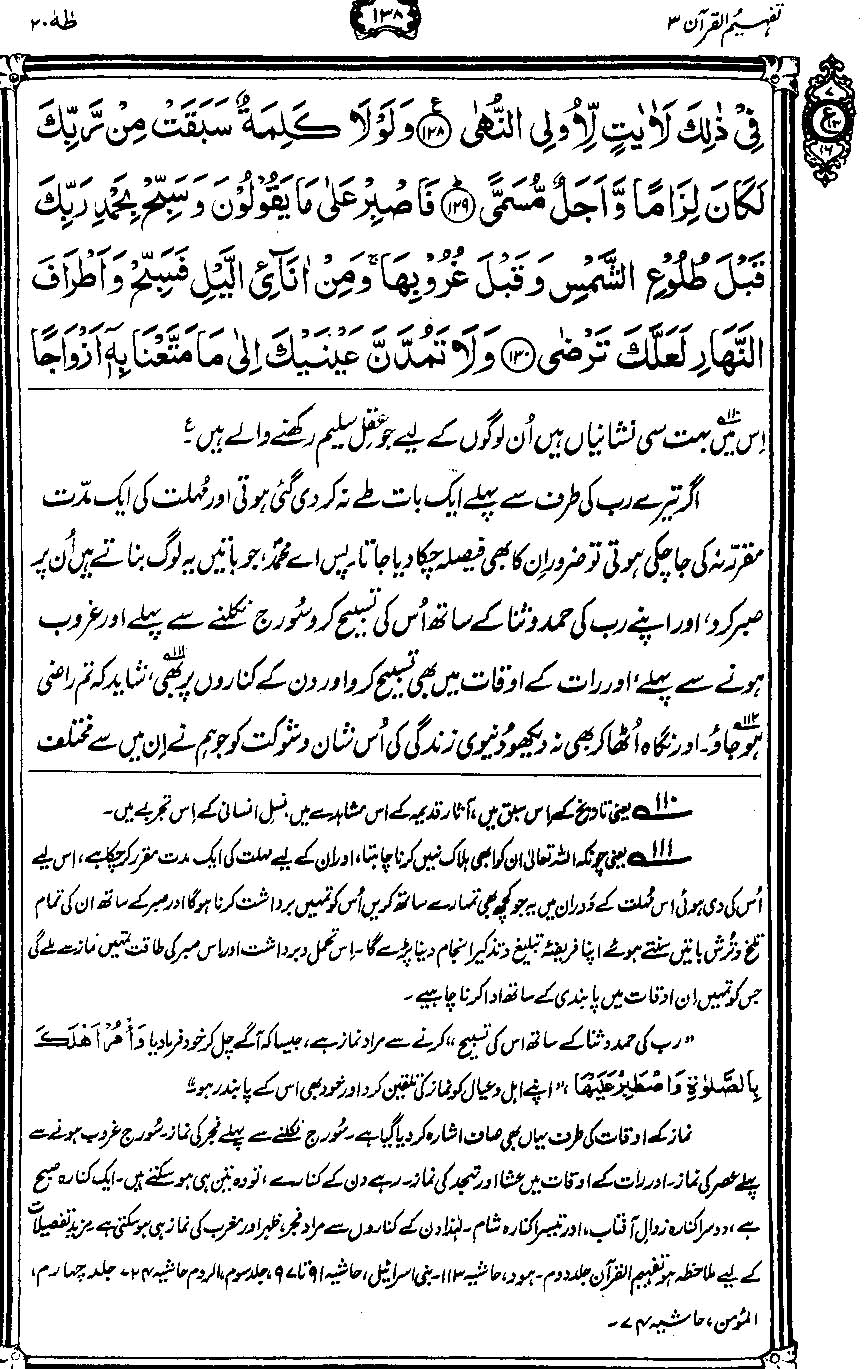 تفہیم القرآن ۳
۱۳۸
طٰہٰ ۲۰
فِیْ ذٰلِكَ لَاٰیٰتٍ لِّاُولِی النُّهٰی ۝۱۲۸ وَلَوْلَا كَلِمَةٌ سَبَقَتْ مِنْ رَّبِّكَ
لَكَانَ لِزَامًا وَّاَجَلٌ مُّسَمًّی ۝۱۲۹ فَاصْبِرْ عَلٰی مَا یَقُوْلُوْنَ وَسَبِّحْ بِحَمْدِ رَبِّكَ
قَبْلَ طُلُوْعِ الشَّمْسِ وَقَبْلَ غُرُوْبِهَا ۚ وَمِنْ اٰنَآئِ الَّیْلِ فَسَبِّحْ وَاَطْرَافَ
النَّهَارِ لَعَلَّكَ تَرْضٰی ۝۱۳۰ وَلَا تَمُدَّنَّ عَیْنَیْكَ اِلٰی مَا مَتَّعْنَا بِهٖۤ اَزْوَاجًا
ع
۷
۱۳
۱۶
اِس میں ۱۱۰ بہت سی نشانیاں ہیں اُن لوگوں کے لیے جو عقلِ سلیم رکھنے والے ہیں۔ ع
اگر تیرے رب کی طرف سے پہلے ایک بات طے نہ کر دی گئی ہوتی اور مُہلت کی ایک مدّت
مقرر نہ کی جا چکی ہوتی تو ضرور اِن کا بھی فیصلہ چکا دیا جاتا۔ پس اے محمدؐ، جو باتیں یہ لوگ بناتے ہیں اُن پر
صبر کرو، اور اپنے رب کی حمد و ثنا کے ساتھ اُس کی تسبیح کرو سُورج نکلنے سے پہلے اور غروب
ہونے سے پہلے، اور رات کے اوقات میں بھی تسبیح کرو اور دن کے کناروں پر بھی ۱۱۱، شاید کہ تم راضی
ہو جاؤ ۱۱۲۔ اور نگاہ اُٹھا کر بھی نہ دیکھو دُنیوی زندگی کی اُس شان و شوکت کو جو ہم نے اِن میں سے مختلف
۱۱۰ یعنی تاریخ کے اِس سبق میں، آثارِ قدیمہ کے اس مشاہدے میں، نسلِ انسانی کے اِس تجربے میں۔
۱۱۱ یعنی چونکہ اللہ تعالیٰ ان کو ابھی ہلاک نہیں کرنا چاہتا، اور ان کے لیے مہلت کی ایک مدت مقرر کر چکا ہے، اس لیے
اُس کی دی ہوئی اس مُہلت کے دَوران میں یہ جو کچھ بھی تمہارے ساتھ کریں اُس کو تمہیں برداشت کرنا ہوگا اور صبر کے ساتھ ان کی تمام
تلخ و تُرش باتیں سنتے ہوئے اپنا فریضۂ تبلیغ و تذکیر انجام دینا پڑے گا۔ اِس تحمل و برداشت اور اس صبر کی طاقت تمہیں نماز سے ملے گی
جس کو تمہیں ان اوقات میں پابندی کے ساتھ ادا کرنا چاہیے۔
”رب کی حمد و ثنا کے ساتھ اس کی تسبیح“ کرنے سے مراد نماز ہے، جیسا کہ آگے چل کر خود فرما دیا وَأْمُرْ اَهْلَكَ
بِالصَّلٰوةِ وَاصْطَبِرْ عَلَیْهَا، ”اپنے اہل و عیال کو نماز کی تلقین کرو اور خود بھی اس کے پابند رہو“۔
نماز کے اوقات کی طرف یہاں بھی صاف اشارہ کر دیا گیا ہے۔ سُورج نکلنے سے پہلے فجر کی نماز۔ سُورج غروب ہونے سے
پہلے عصر کی نماز۔ اور رات کے اوقات میں عشا اور تہجد کی نماز۔ رہے دن کے کنارے، تو وہ تین ہی ہو سکتے ہیں۔ ایک کنارہ صبح
ہے، دوسرا کنارہ زوالِ آفتاب، اور تیسرا کنارہ شام۔ لہٰذا دن کے کناروں سے مراد فجر، ظہر اور مغرب کی نماز ہی ہو سکتی ہے مزید تفصیلات
کے لیے ملاحظہ ہو تفہیم القرآن جلد دوم۔ ہود، حاشیہ ۱۱۳۔ بنی اسرائیل، حاشیہ ۹۱ تا ۹۷، جلد سوم، الروم حاشیہ ۲۴۔ جلد چہارم،
المؤمن، حاشیہ ۷۴۔